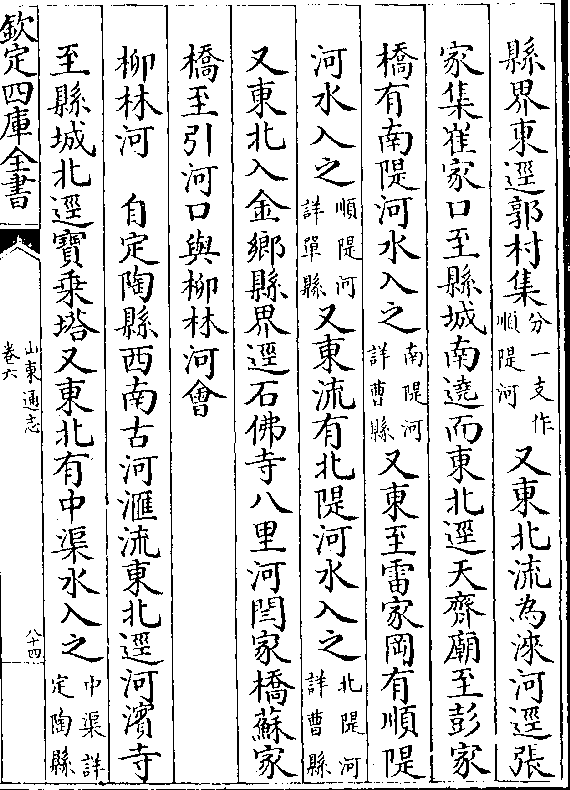 縣界東逕郭村集分一支作順隄河又東北流為淶河逕張
家集崔家口至縣城南遶而東北逕天齊廟至彭家
橋有南隄河水入之南隄河詳曹縣又東至雷家岡有順隄
河水入之順隄河詳單縣又東流有北隄河水入之北隄河詳曹縣
又東北入金鄉縣界逕石佛寺八里河閆家橋蘇家
橋至引河口與柳林河會
柳林河　自定陶縣西南古河滙流東北逕河濱寺
至縣城北逕寶乗塔又東北有中渠水入之中渠詳定陶縣
欽定四庫全書
山東通志
卷六
八十四